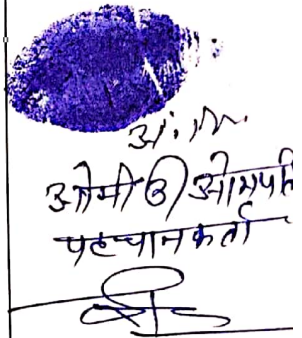 अं. नि.
ओमी उ ओमपति
पहचानकर्ता